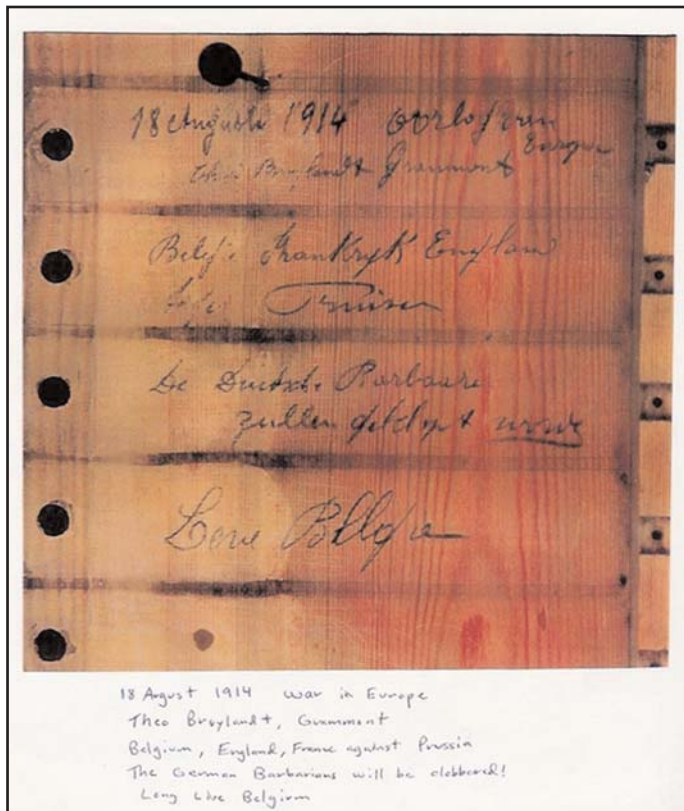 18 Augusti 1914 oorlog van
Europa
Theo Bruylandt Grammont
Belgie Frankryk England
Pruisen
De Duitsche Barbaare
zullen geklopt worde
Leve Belgie
18 August 1914 War in Europe
Theo Bruylandt, Grammont
Belgium, England, France against Prussia
The German Barbarians will be clobbered!
Long Live Belgium